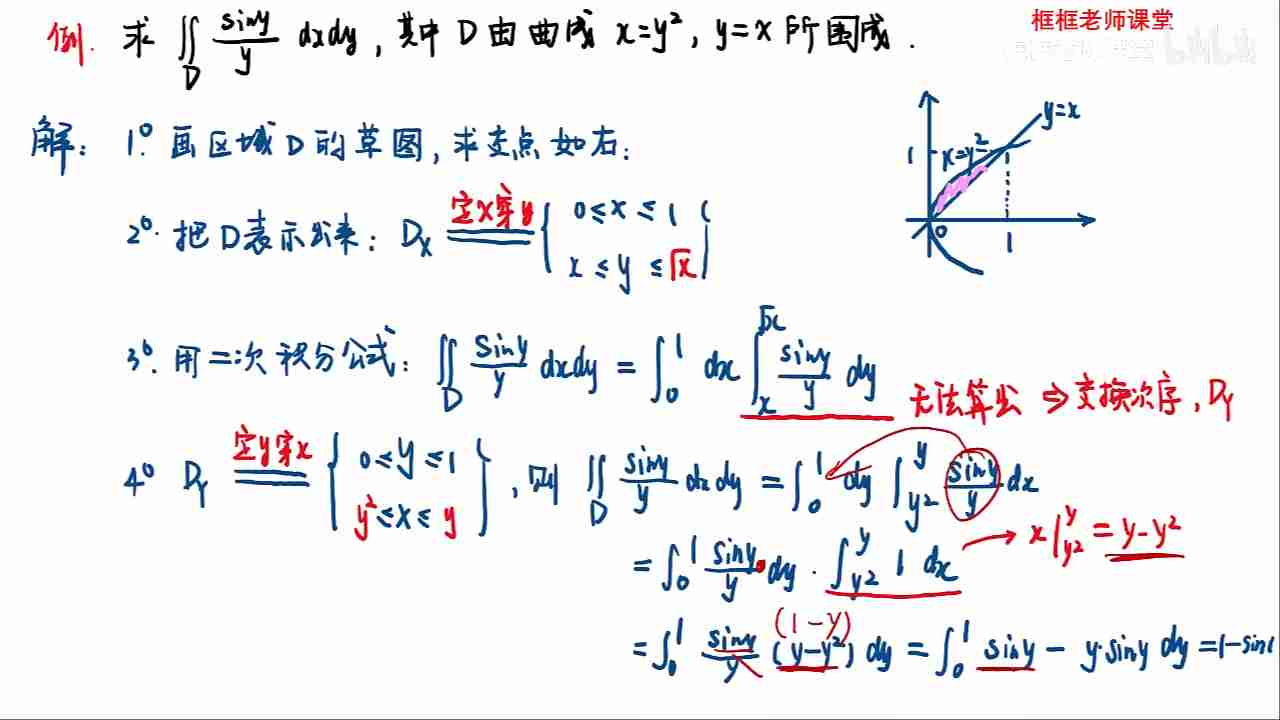 框框老师课堂
例. 求 ∬_D siny/y dxdy, 其中 D 由曲线 x=y², y=x 所围成.
解: 1°. 画区域D的草图, 求交点如右:
y=x
x=y²
1
0
1
2°. 把D表示出来: D_X 定x穿y { 0≤x≤1, x≤y≤√x }
3°. 用二次积分公式: ∬_D siny/y dxdy = ∫_0^1 dx ∫_x^√x siny/y dy
无法算出 ⇒ 交换次序, D_Y
4° D_Y 定y穿x { 0≤y≤1, y²≤x≤y }, 则 ∬_D siny/y dxdy = ∫_0^1 dy ∫_{y²}^y siny/y dx
= ∫_0^1 siny/y · dy · ∫_{y²}^y 1 dx → x|_{y²}^y = y-y²
(1-y)
= ∫_0^1 siny/y (y-y²) dy = ∫_0^1 siny - y·siny dy = 1-sin1